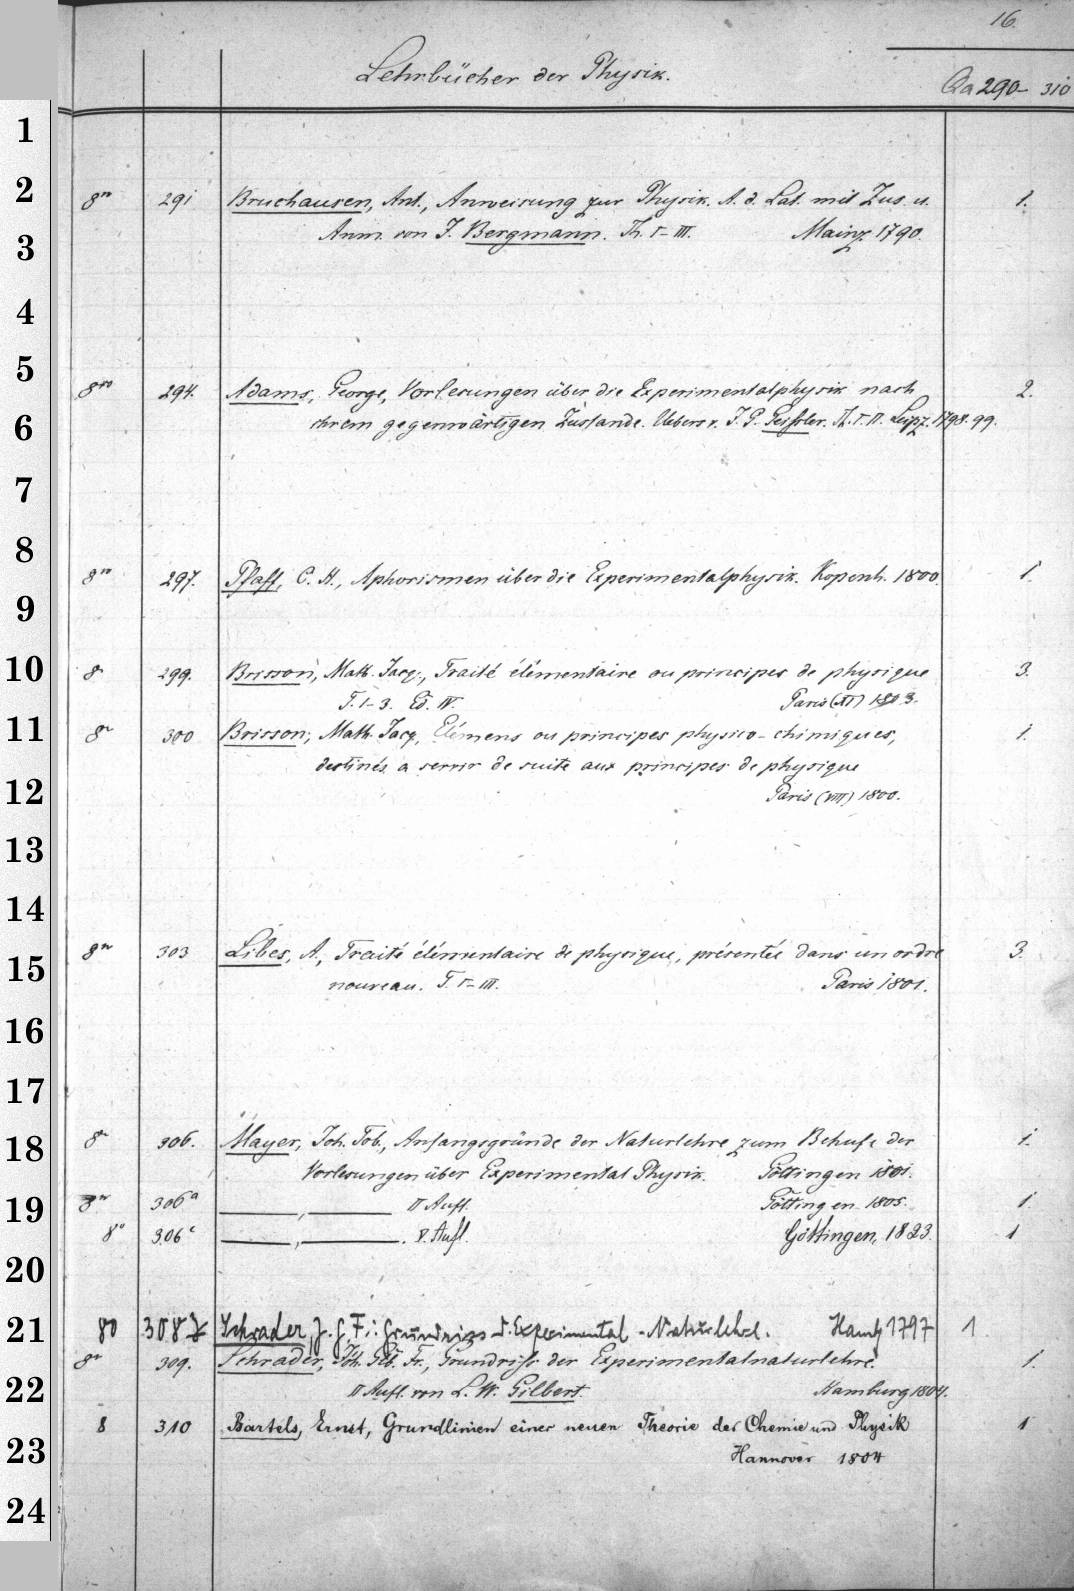 16.
Lehrbücher der Physik.
Qa 290- 310
1
2
8vo 291 Bruchausen, Ant., Anweisung zur Physik. A. d. Lat. mit Zus. u. 1.
Anm. von J. Bergmann. Th. I-III. Mainz 1790.
3
4
5
8vo 294. Adams, George, Vorlesungen über die Experimentalphysik nach 2.
ihrem gegenwärtigen Zustande. Uebers v. J. G. Geissler. Th. I. II. Leipz. 1798. 99.
6
7
8
8vo 297. Pfaff, C. H., Aphorismen über die Experimentalphysik. Kopenh. 1800. 1.
9
10 8 299. Brisson, Math. Jacq., Traité élémentaire ou principes de physique 3.
T. 1-3. Ed. IV. Paris (XI) 1803.
11 8 300 Brisson, Math. Jacq. Elémens ou principes physico-chimiques, 1.
destinés a servir de suite aux principes de physique
12 Paris (VIII) 1800.
13
14
8vo 303 Libes, A., Traité élémentaire de physique, présentée dans un ordre 3.
15 nouveau. T. I-III. Paris 1801.
16
17
18 8 306. Mayer, Joh. Tob., Anfangsgründe der Naturlehre zum Behufe der 1.
Vorlesungen über Experimental Physik. Göttingen 1801.
19 306a —, — II Aufl. Göttingen 1805. 1
8o 306c —, —. V. Aufl. Göttingen, 1823. 1
20
21 80 308 Schrader, J. G. F.: Grundriss d. Experimental-Naturlehre. Hambg 1797 1
309. Schrader, Joh. Gtb. Fr., Grundriss der Experimentalnaturlehre. 1.
22 II Aufl. von L. W. Gilbert. Hamburg 1804.
8 310 Bartels, Ernst, Grundlinien einer neuen Theorie der Chemie und Physik 1
23 Hannover 1804
24